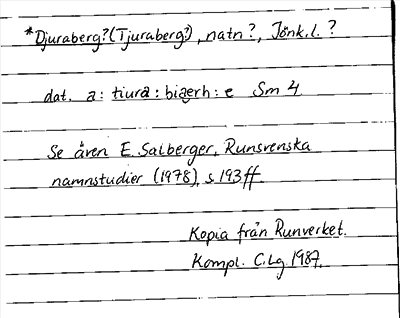 *Djuraberg? (Tjuraberg?), natn?, Jönk.l. ?
dat. a : tiura : biaerh : e Sm 4
Se även E. Salberger, Runsvenska
namnstudier (1978), s. 193 ff
Kopia från Runverket.
Kompl. C.Lg. 1987.